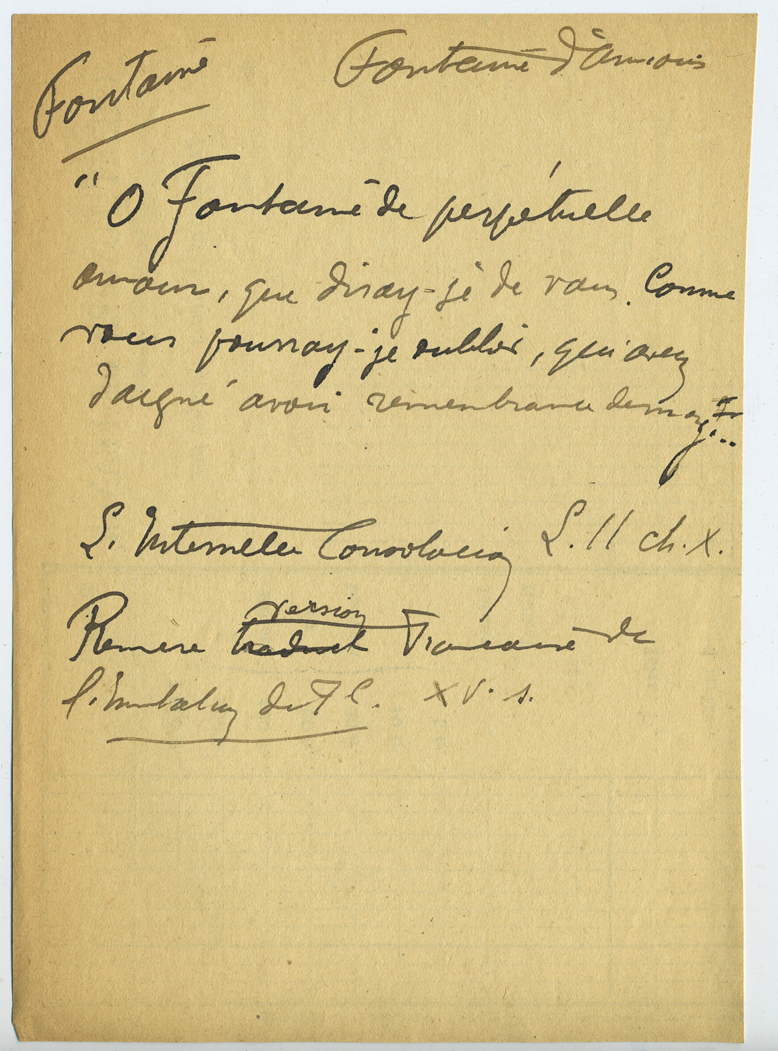 Fontaine Fontaine d'Amour
"O Fontaine de perpétuelle
amour, que diray-je de vous. Comme
vous pourray-je oublier, qui avez
daigné avoir remembrance de moy...
L. Internelle Consolacion L. II ch. X.
version
Premiere traduct Francaise de
l'Imitation de J C. XV. s.